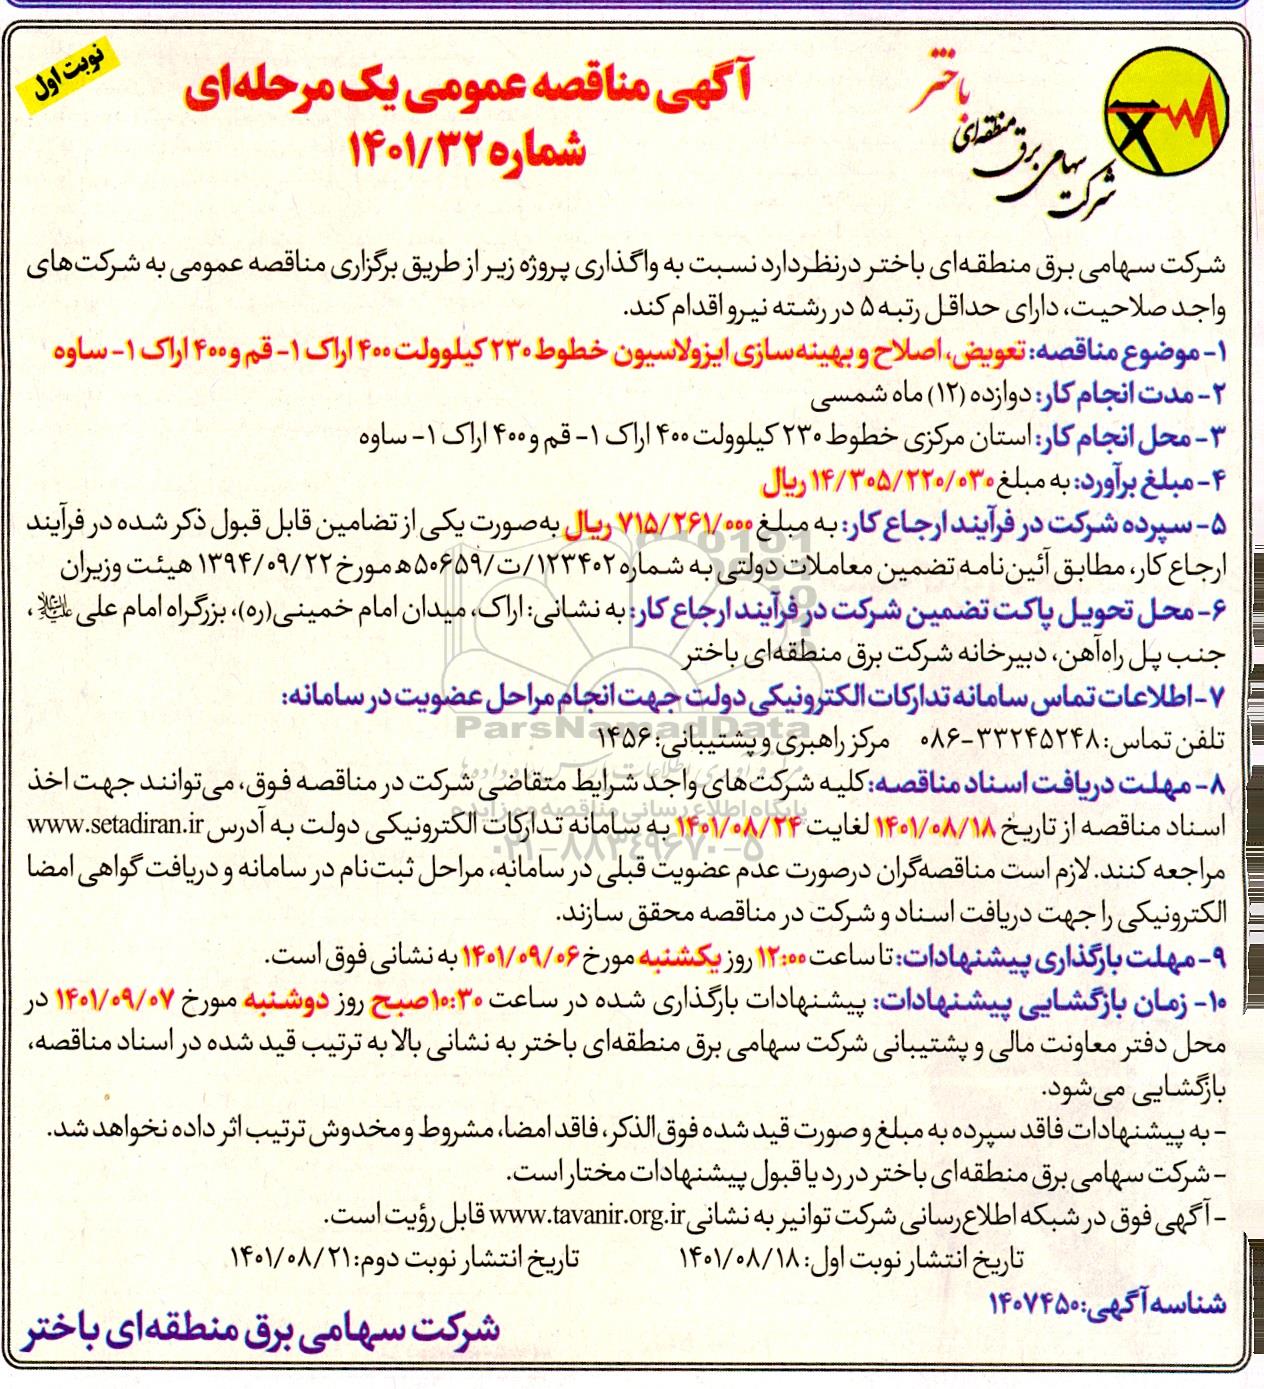 نوبت اول
باختر
شرکت سهامی برق منطقه‌ای
آگهی مناقصه عمومی یک مرحله‌ای
شماره ۱۴۰۱/۳۲
شرکت سهامی برق منطقه‌ای باختر درنظردارد نسبت به واگذاری پروژه زیر از طریق برگزاری مناقصه عمومی به شرکت‌های
واجد صلاحیت، دارای حداقل رتبه ۵ در رشته نیرو اقدام کند.
۱- موضوع مناقصه: تعویض، اصلاح و بهینه‌سازی ایزولاسیون خطوط ۲۳۰ کیلوولت ۴۰۰ اراک ۱- قم و ۴۰۰ اراک ۱- ساوه
۲- مدت انجام کار: دوازده (۱۲) ماه شمسی
۳- محل انجام کار: استان مرکزی خطوط ۲۳۰ کیلوولت ۴۰۰ اراک ۱- قم و ۴۰۰ اراک ۱- ساوه
۴- مبلغ برآورد: به مبلغ ۱۴/۳۰۵/۲۲۰/۰۳۰ ریال
۵- سپرده شرکت در فرآیند ارجاع کار: به مبلغ ۷۱۵/۲۶۱/۰۰۰ ریال به‌صورت یکی از تضامین قابل قبول ذکر شده در فرآیند
ارجاع کار، مطابق آئین‌نامه تضمین معاملات دولتی به شماره ۱۲۳۴۰۲/ت/۵۰۶۵۹ه مورخ ۱۳۹۴/۰۹/۲۲ هیئت وزیران
۶- محل تحویل پاکت تضمین شرکت در فرآیند ارجاع کار: به نشانی: اراک، میدان امام خمینی(ره)، بزرگراه امام علی علیه‌السلام،
جنب پل راه‌آهن، دبیرخانه شرکت برق منطقه‌ای باختر
۷- اطلاعات تماس سامانه تدارکات الکترونیکی دولت جهت انجام مراحل عضویت در سامانه:
تلفن تماس: ۳۳۲۴۵۲۴۸-۰۸۶ مرکز راهبری و پشتیبانی: ۱۴۵۶
۸- مهلت دریافت اسناد مناقصه: کلیه شرکت‌های واجد شرایط متقاضی شرکت در مناقصه فوق، می‌توانند جهت اخذ
اسناد مناقصه از تاریخ ۱۴۰۱/۰۸/۱۸ لغایت ۱۴۰۱/۰۸/۲۴ به سامانه تدارکات الکترونیکی دولت به آدرس www.setadiran.ir
مراجعه کنند. لازم است مناقصه‌گران درصورت عدم عضویت قبلی در سامانه، مراحل ثبت‌نام در سامانه و دریافت گواهی امضا
الکترونیکی را جهت دریافت اسناد و شرکت در مناقصه محقق سازند.
۹- مهلت بارگذاری پیشنهادات: تا ساعت ۱۲:۰۰ روز یکشنبه مورخ ۱۴۰۱/۰۹/۰۶ به نشانی فوق است.
۱۰- زمان بازگشایی پیشنهادات: پیشنهادات بارگذاری شده در ساعت ۱۰:۳۰ صبح روز دوشنبه مورخ ۱۴۰۱/۰۹/۰۷ در
محل دفتر معاونت مالی و پشتیبانی شرکت سهامی برق منطقه‌ای باختر به نشانی بالا به ترتیب قید شده در اسناد مناقصه،
بازگشایی می‌شود.
- به پیشنهادات فاقد سپرده به مبلغ و صورت قید شده فوق‌الذکر، فاقد امضا، مشروط و مخدوش ترتیب اثر داده نخواهد شد.
- شرکت سهامی برق منطقه‌ای باختر در رد یا قبول پیشنهادات مختار است.
- آگهی فوق در شبکه اطلاع‌رسانی شرکت توانیر به نشانی www.tavanir.org.ir قابل رؤیت است.
تاریخ انتشار نوبت اول: ۱۴۰۱/۰۸/۱۸ تاریخ انتشار نوبت دوم: ۱۴۰۱/۰۸/۲۱
شناسه آگهی: ۱۴۰۷۴۵۰
شرکت سهامی برق منطقه‌ای باختر
ParsNamadData
پایگاه اطلاع رسانی مناقصه و مزایده
۰۲۱-۸۸۳۴۹۶۷۰-۵